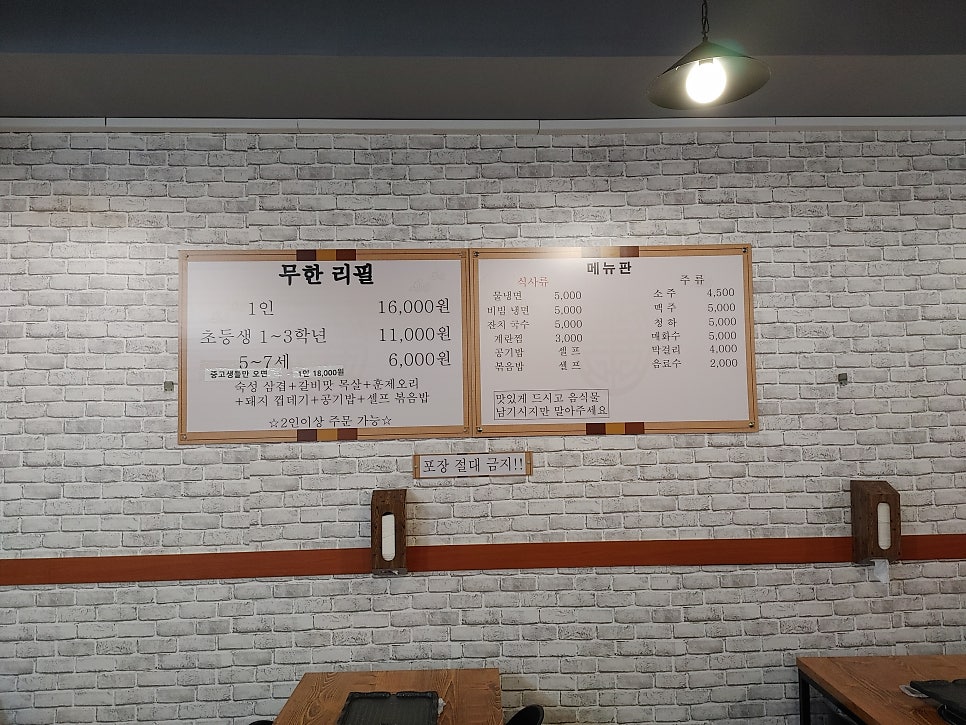 무한 리필
1인 16,000원
초등생 1~3학년 11,000원
5~7세 6,000원
중고생들만 오면 1인 18,000원
숙성 삼겹+갈비맛 목살+훈제오리
+돼지 껍데기+공기밥+셀프 볶음밥
☆2인이상 주문 가능☆
메뉴판
식사류
물냉면 5,000
비빔 냉면 5,000
잔치 국수 5,000
계란찜 3,000
공기밥 셀 프
볶음밥 셀 프
주 류
소 주 4,500
맥 주 5,000
청 하 5,000
매화수 5,000
막걸리 4,000
음료수 2,000
맛있게 드시고 음식물
남기시지만 말아주세요
포장 절대 금지!!